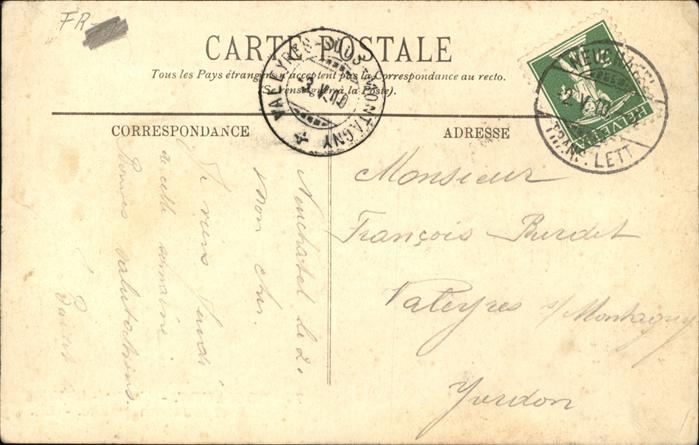 FR-
CARTE POSTALE
Tous les Pays étrangers n'acceptent pas la Correspondance au recto.
(Se renseigner à la Poste).
VALEYRES-SOUS-MONTAGNY
2.V.10
NEUCHATEL
2.V.10
TRANS. LETT.
HELVETIA
CORRESPONDANCE
ADRESSE
Monsieur
François Burdet
Valeyres s/ Montagny
Yverdon
Neuchatel le 2.
Mon cher.
Je viens lundi
de cette semaine.
Bonnes salutations.